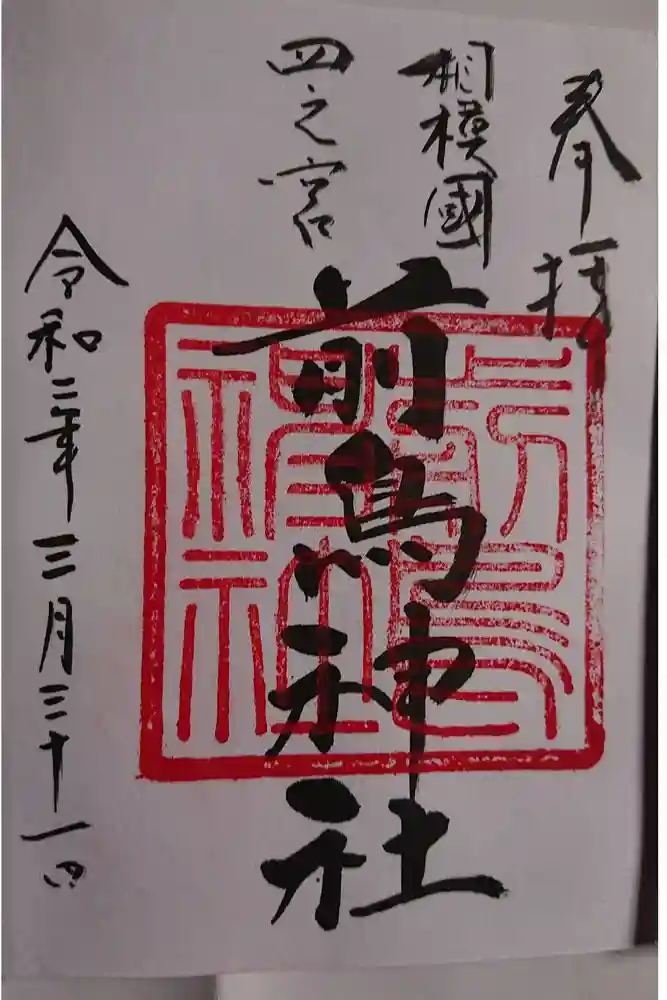 奉拝
相模國
四之宮
前鳥神社
令和三年三月三十一日
前鳥神社